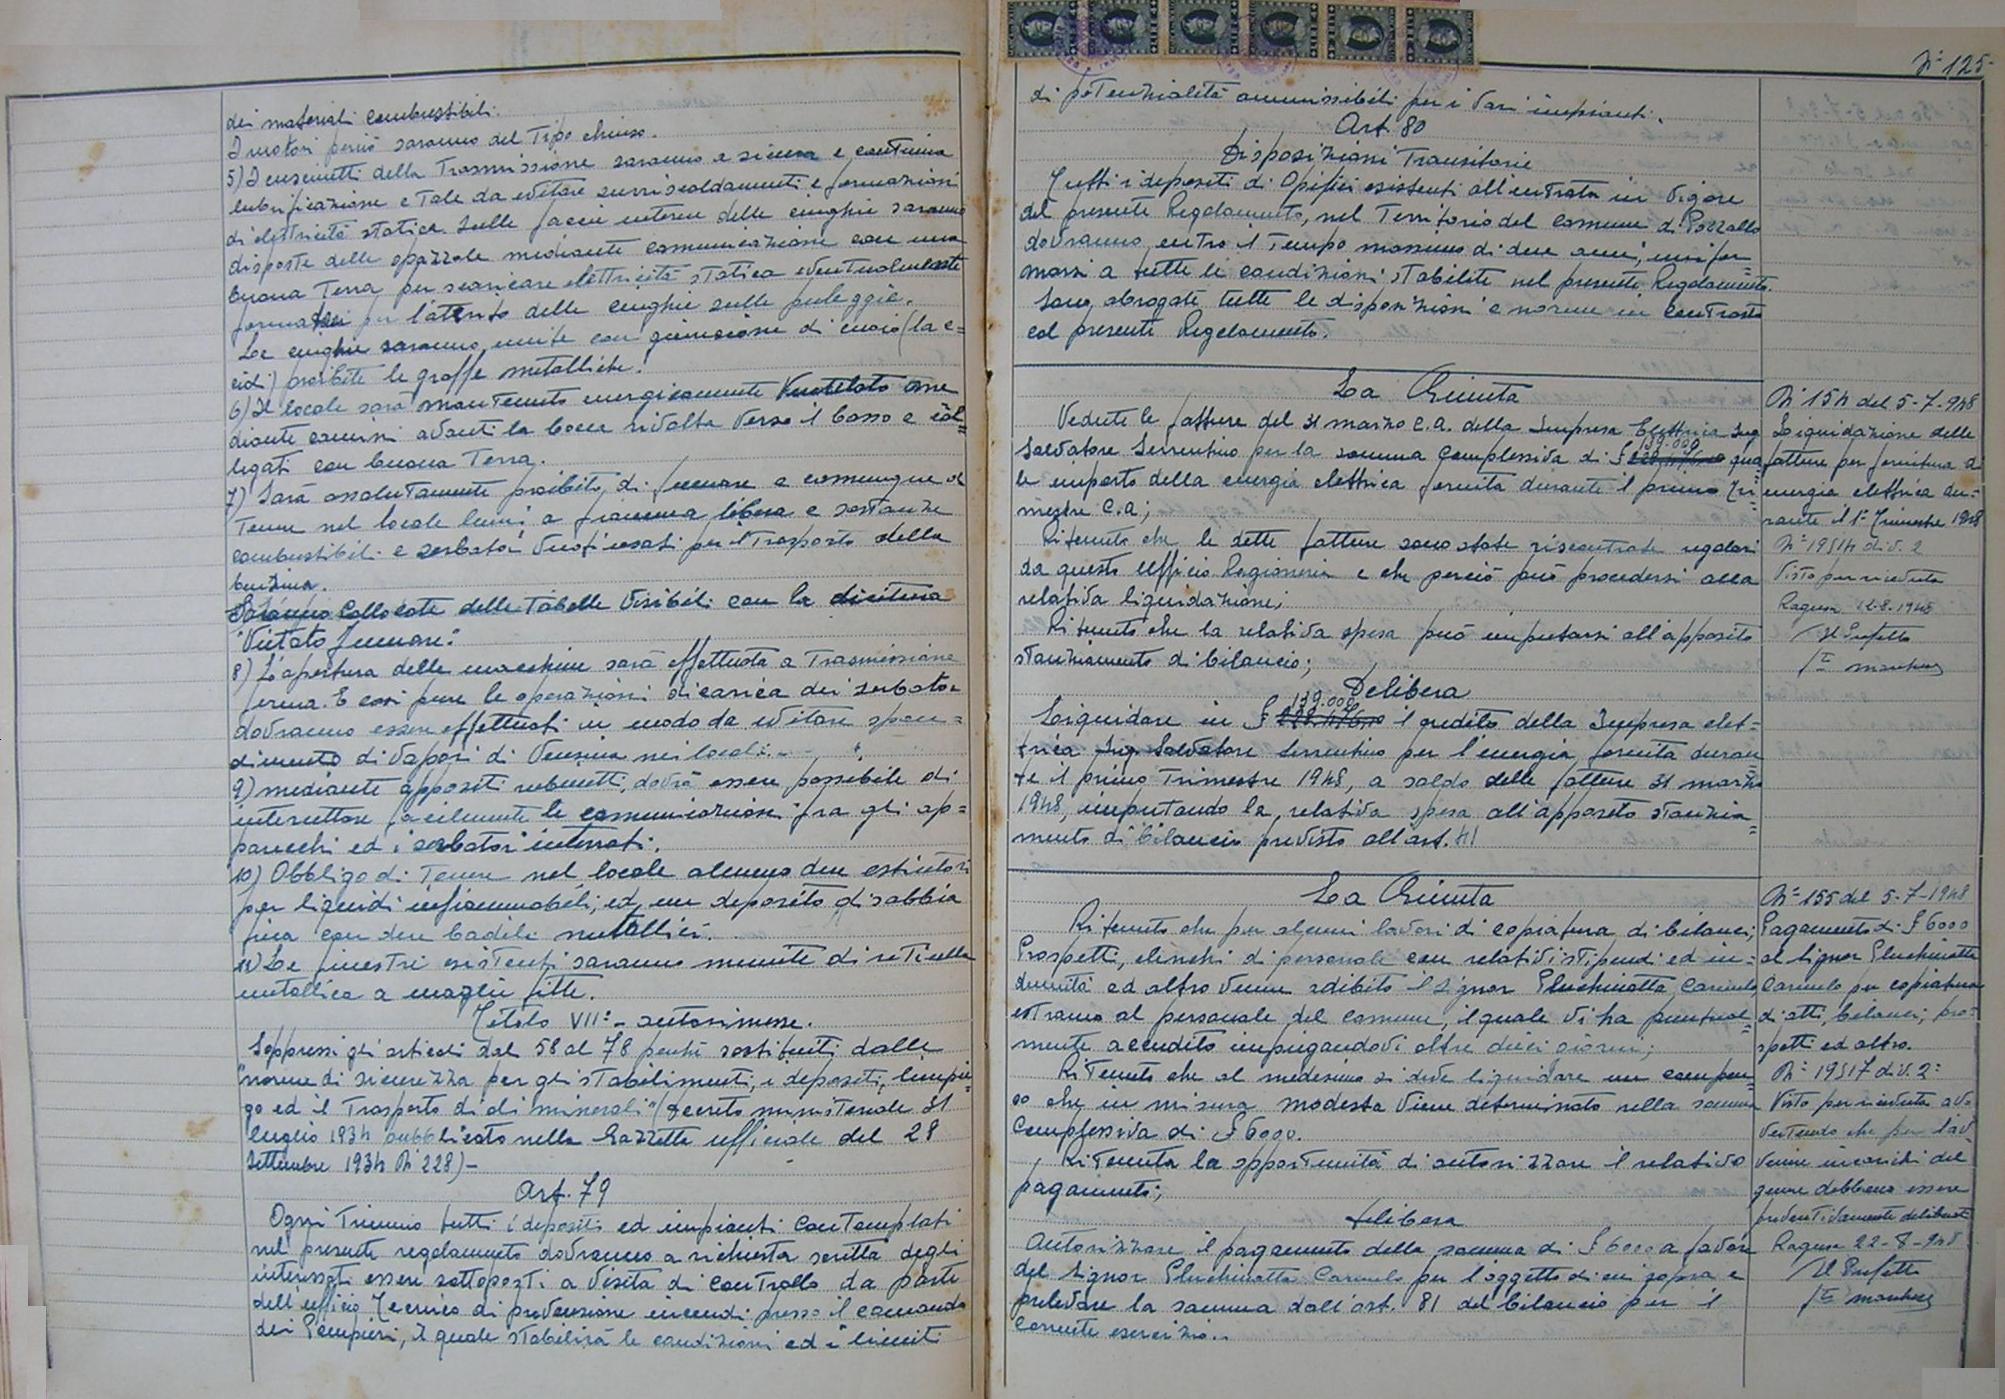 dei materiali combustibili.
I motori perciò saranno del Tipo chiuso.
5) I cuscinetti della Trasmissione saranno a sicura e continua
lubrificazione e tale da evitare surriscaldamenti e formazioni
di elettricità statica. Sulle facce interne delle cinghie saranno
disposte delle spazzole mediante comunicazione con una
buona Terra per scaricare elettricità statica eventualmente
formatasi per l'attrito delle cinghie sulle pulegge.
Le cinghie saranno unite con giunzione di cuoio (la c=
cidi) proibite le graffe metalliche.
6) Il locale sarà mantenuto energicamente Ventilato me
diante camini aventi la bocca rivolta verso il basso e col=
legati con buona Terra.
7) Sarà assolutamente proibito di fumare e comunque
Tenere nel locale lumi a fiamma libera e sostanze
combustibili e serbatoi per il Trasporto della
benzina.
Saranno collocate delle tabelle visibili con la dicitura
"Vietato fumare".
8) L'apertura delle macchine sarà effettuata a Trasmissione
ferma. E così pure le operazioni di carica dei serbatoi
dovranno essere effettuati in modo da evitare span=
dimento di vapori di benzina nei locali.
9) mediante appositi rubinetti, dovrà essere possibile di
interrompere facilmente le comunicazioni fra gli ap=
parecchi ed i serbatoi interrati.
10) Obbligo di Tenere nel locale almeno due estintori
per liquidi infiammabili, ed un deposito di sabbia
fina con due badili metallici.
11) Le finestre esistenti saranno munite di reticella
metallica a maglie fitte.
Titolo VII° - autorimesse.
Soppressi gli articoli dal 58 al 78 perché sostituiti dalle
"norme di sicurezza per gli stabilimenti, i depositi, l'impie=
go ed il Trasporto di oli minerali" (decreto ministeriale 31
luglio 1934 pubblicato nella Gazzetta ufficiale del 28
Settembre 1934 N° 228)-
Art. 79
Ogni Triennio tutti i depositi ed impianti contemplati
nel presente regolamento dovranno a richiesta scritta degli
interessati essere sottoposti a visita di controllo da parte
dell'ufficio Tecnico di prevenzione incendi presso il comando
dei Pompieri, il quale stabilirà le condizioni ed i limiti
N° 125
di potenzialità ammissibili per i vari impianti.
Art. 80
Disposizioni Transitorie
Tutti i depositi di Opifici esistenti all'entrata in vigore
del presente Regolamento, nel Territorio del comune di Pozzallo
dovranno, entro il Tempo massimo di due anni, unifor=
marsi a tutte le condizioni stabilite nel presente Regolamento.
Sono abrogate tutte le disposizioni e norme in contrasto
col presente Regolamento.
La Giunta
Vedute le fatture del 31 marzo c.a. della Impresa Elettrica Ing
Salvatore Sorrentino per la somma complessiva di £ 139.000 qua
le importo della energia elettrica fornita durante il primo Tri=
mestre c.a;
Ritenuto che le dette fatture sono state riscontrate regolari
da questo Ufficio Ragioneria e che perciò può procedersi alla
relativa liquidazione;
Ritenuto che la relativa spesa può imputarsi all'apposito
stanziamento di bilancio;
Delibera
Liquidare in £ 139.000 il credito della Impresa elet=
trica Ing. Salvatore Sorrentino per l'energia fornita duran
te il primo Trimestre 1948, a saldo delle fatture 31 marzo
1948, imputando la relativa spesa all'apposito stanzia=
mento di bilancio previsto all'art. 41
N° 154 del 5-7-948
Liquidazione delle
fatture per fornitura di
energia elettrica du=
rante il 1° Trimestre 1948
N° 19514 div. 2
Visto per ricevuta
Ragusa 12-8-1948
Il Prefetto
La Giunta
Ritenuto che per alcuni lavori di copiatura di bilanci,
Prospetti, elenchi di personali con relativi stipendi ed in=
dennità ed altro venne adibito il signor Pluchinotta Carmelo
estraneo al personale del comune, il quale vi ha puntual=
mente accudito impiegandovi oltre dieci giorni;
Ritenuto che al medesimo si deve liquidare un compen=
so che in misura modesta viene determinato nella somma
complessiva di £ 6000.
Ritenuta la opportunità di autorizzare il relativo
pagamento;
Delibera
Autorizzare il pagamento della somma di £ 6000 a favore
del Signor Pluchinotta Carmelo per l'oggetto di cui sopra e
prelevare la somma dall'art. 81 del bilancio per il
corrente esercizio.
N° 155 del 5-7-1948
Pagamento di £ 6000
al Signor Pluchinotta
Carmelo per copiatura
di atti, bilanci, pro=
spetti ed altro.
N° 19517 div. 2°
Visto per ricevuta av=
vertendo che per l'av=
venire incarichi del
genere debbono essere
preventivamente deliberati
Ragusa 22-8-948
Il Prefetto